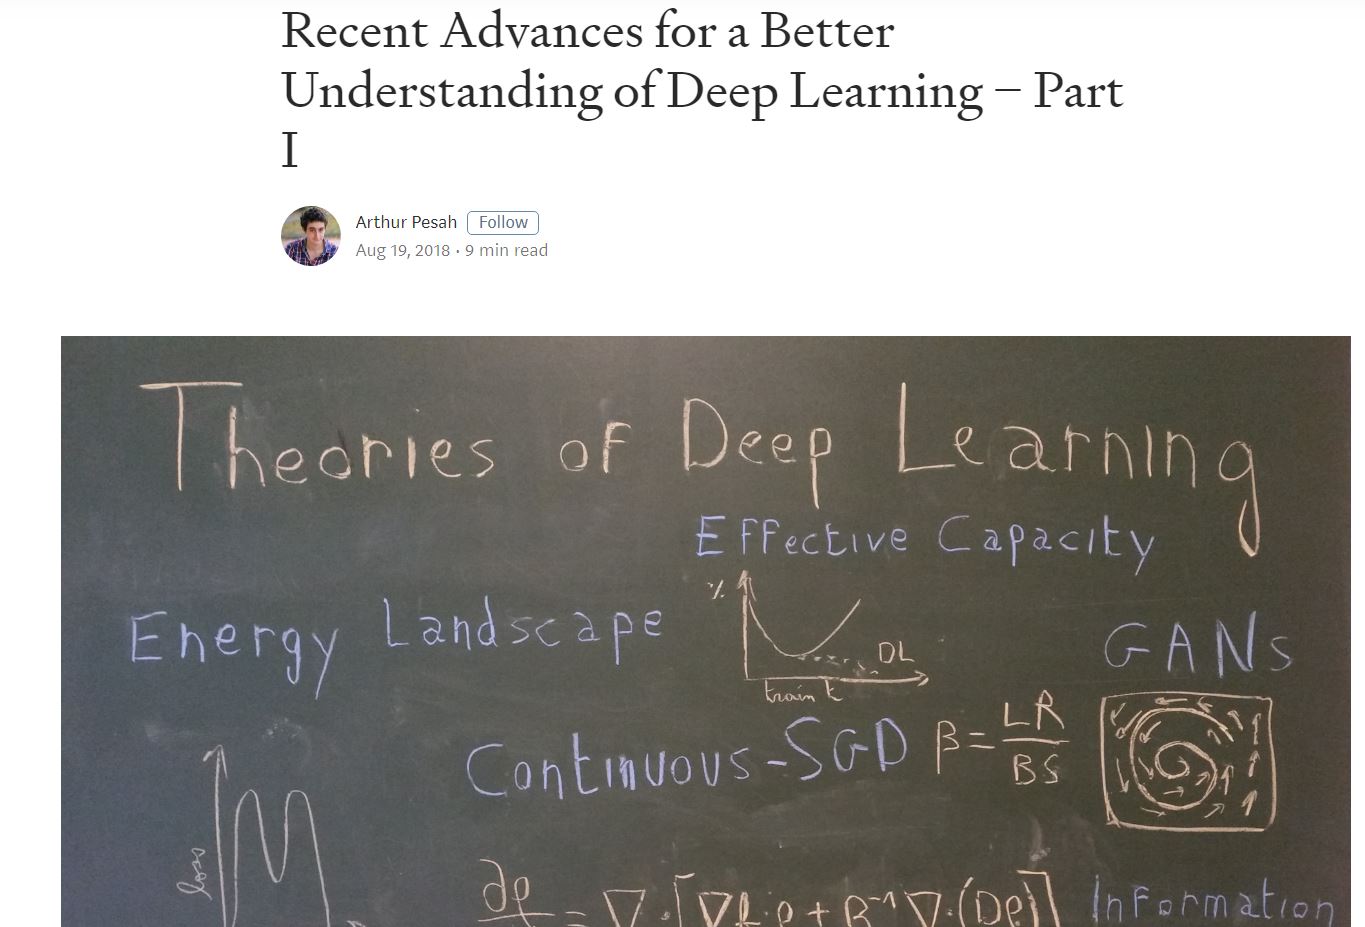 Recent Advances for a Better
Understanding of Deep Learning — Part
I
Arthur Pesah Follow
Aug 19, 2018 · 9 min read
Theories of Deep Learning
Effective Capacity
%
Energy Landscape
DL
GANs
train t
Continuous-SGD β = LR
BS
loss
∂ρ = ∇·[∇f·ρ + β⁻¹∇·(Dρ)]
Information